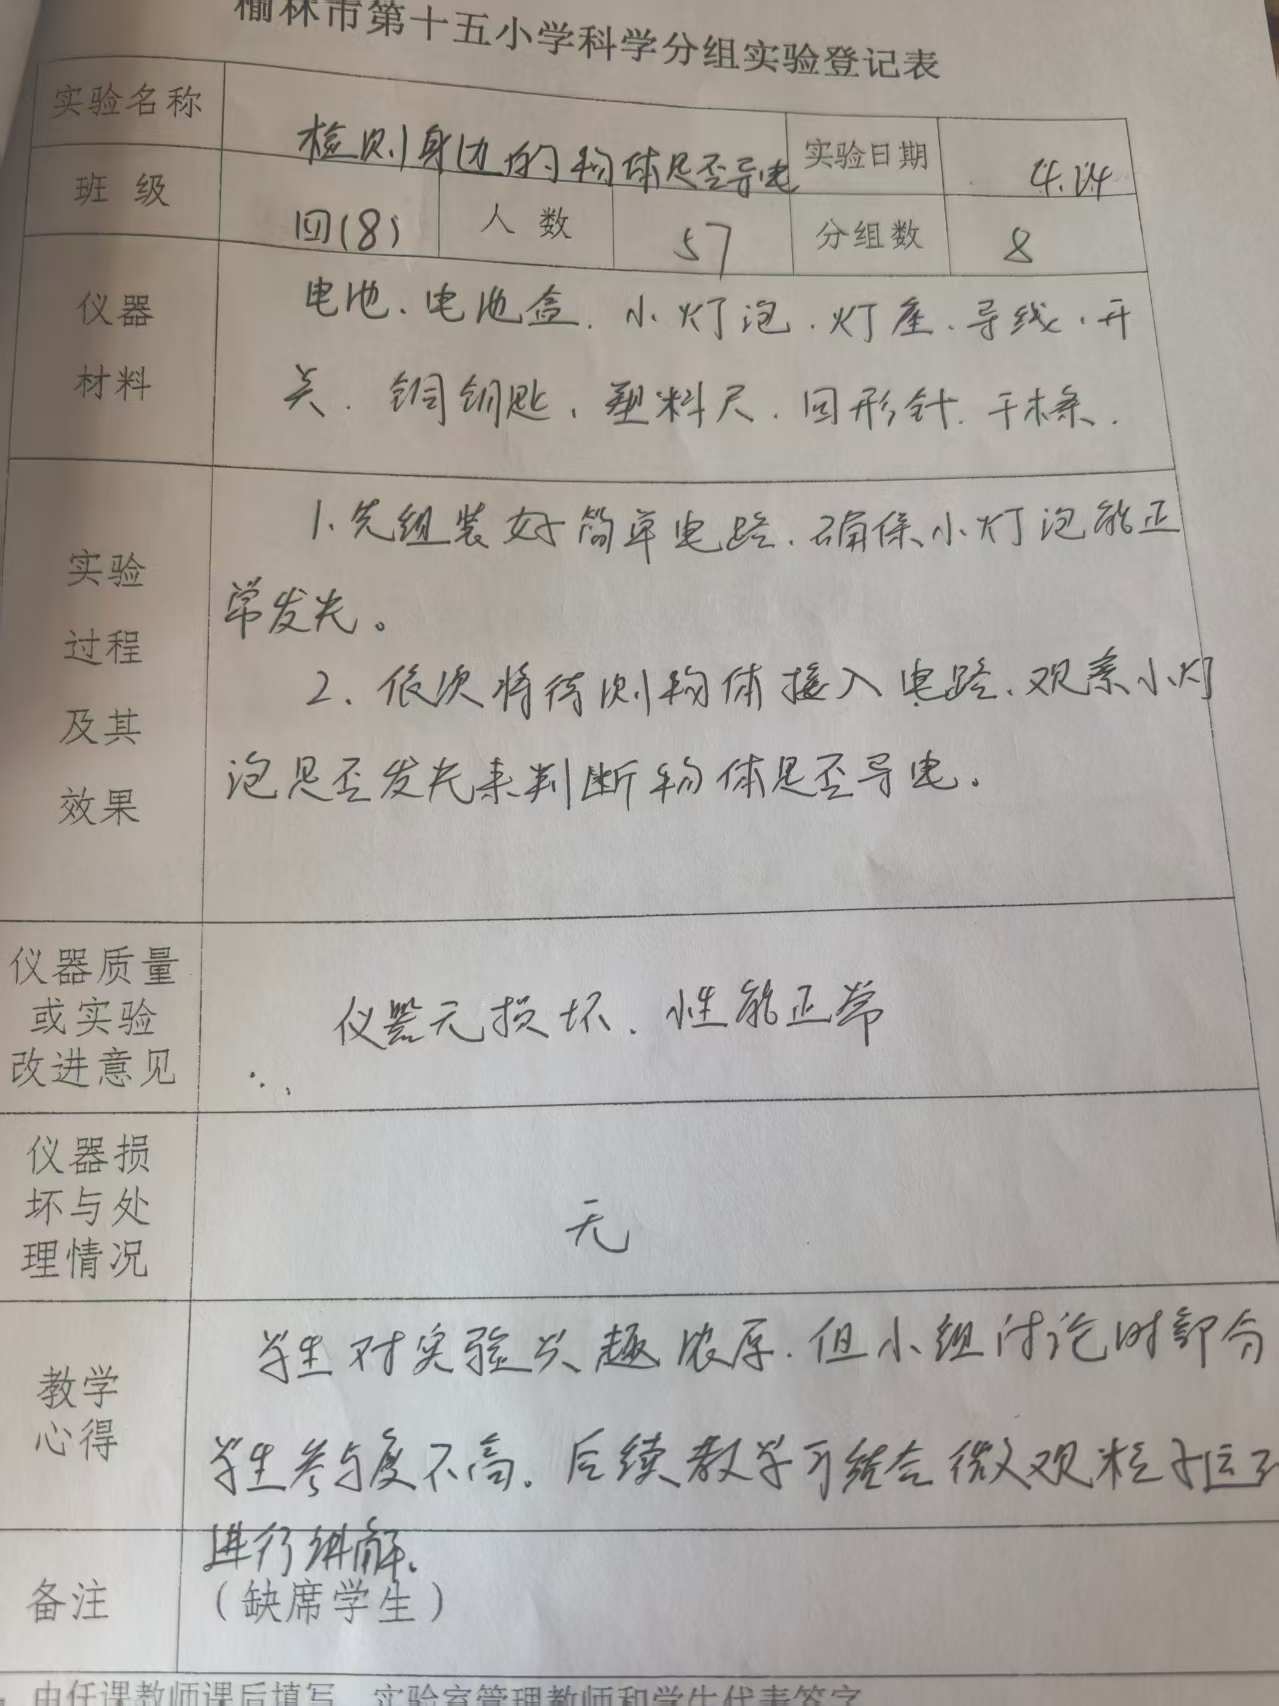 榆林市第十五小学科学分组实验登记表
实验名称 检测身边的物体是否导电 实验日期 4.14
班级 四(8) 人数 57 分组数 8
仪器 电池、电池盒、小灯泡、灯座、导线、开
材料 关、铜钥匙、塑料尺、回形针、干木条.
1.先组装好简单电路,确保小灯泡能正
实验 常发光。
过程 2、依次将待测物体接入电路,观察小灯
及其 泡是否发光来判断物体是否导电。
效果
仪器质量
或实验 仪器无损坏、性能正常
改进意见
仪器损
坏与处 无
理情况
学生对实验兴趣浓厚,但小组讨论时部分
教学
心得 学生参与度不高。后续教学可结合微观粒子
进行讲解。
备注 (缺席学生)
由任课教师课后填写 实验室管理教师和学生代表签字